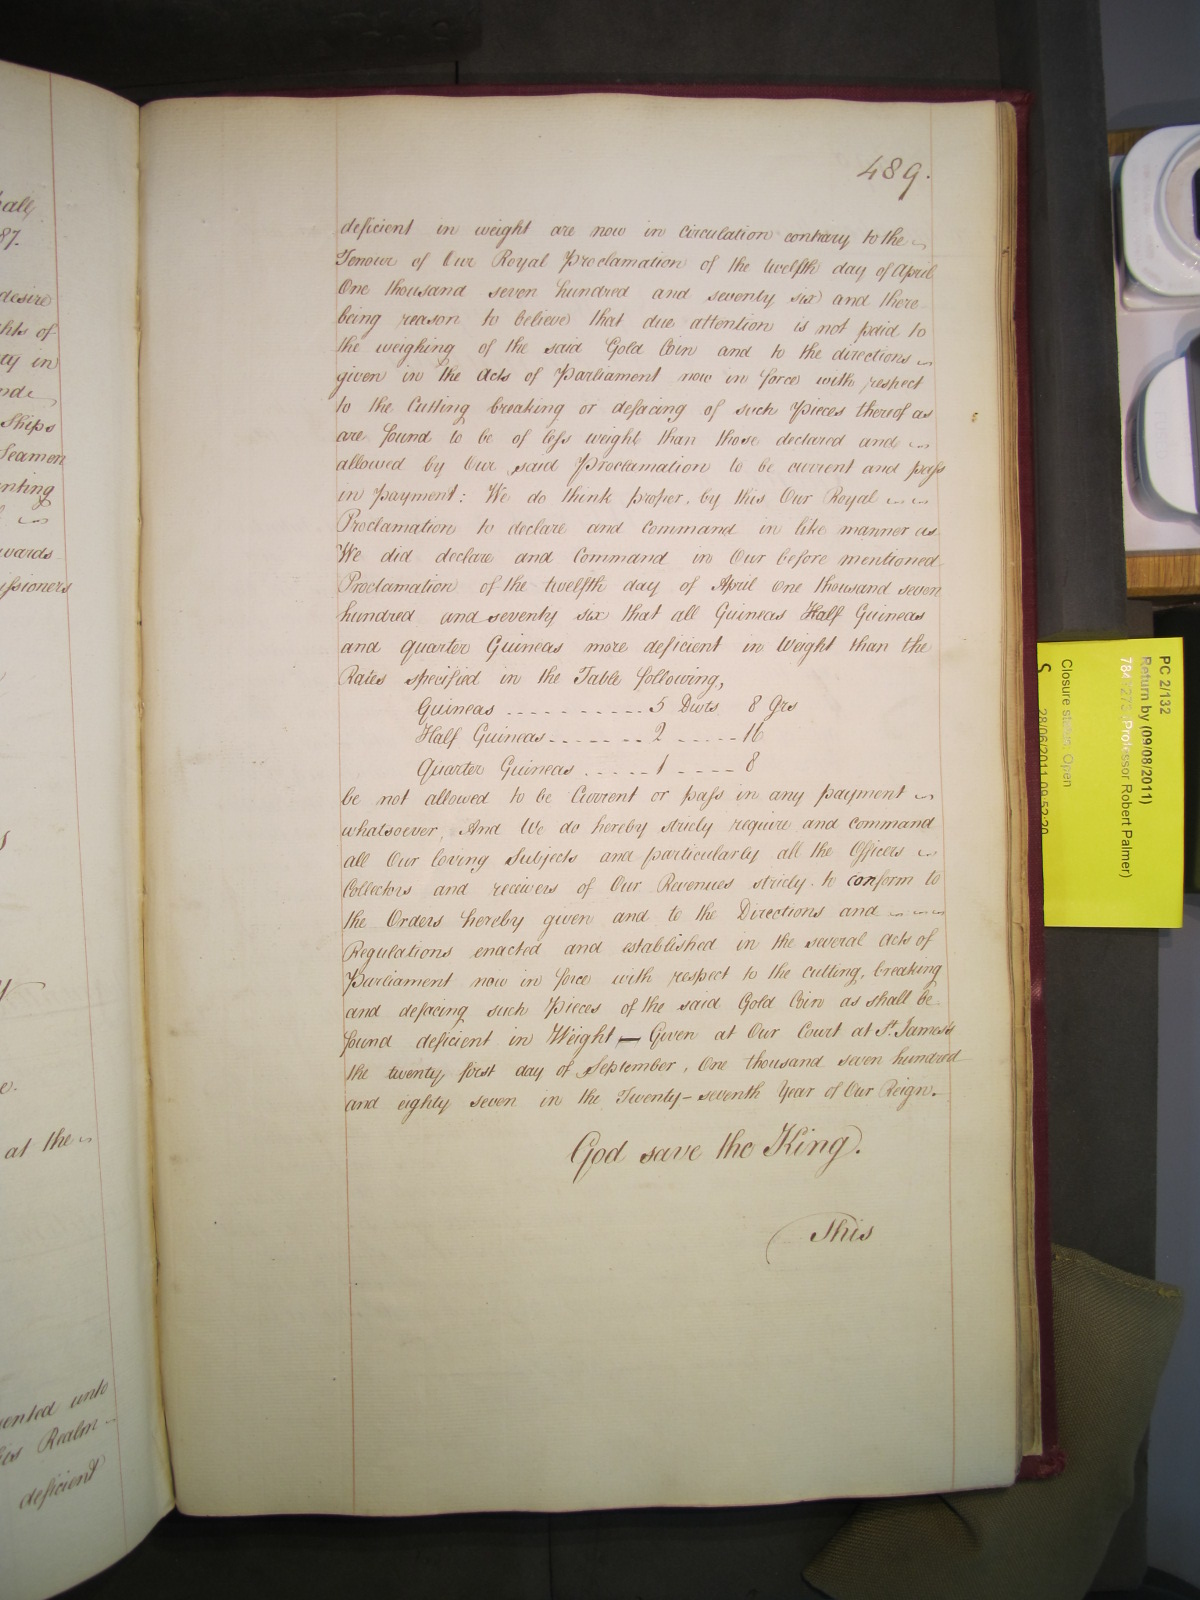 ally
87.
desire
hts of
ay in
nde
Ships
Seamen
nting
wards
issioners
e.
at the
ented unto
Realm
deficient
489.
deficient in weight are now in circulation contrary to the
Tenour of Our Royal Proclamation of the twelfth day of April
One thousand seven hundred and seventy six and there
being reason to believe that due attention is not paid to
the weighing of the said Gold Coin and to the directions
given in the Acts of Parliament now in force with respect
to the Cutting breaking or defacing of such Pieces thereof as
are found to be of less weight than those declared and
allowed by Our said Proclamation to be current and pass
in Payment: We do think proper, by this Our Royal
Proclamation to declare and Command in like manner as
We did declare and Command in Our before mentioned
Proclamation of the twelfth day of April One thousand seven
hundred and seventy six that all Guineas Half Guineas
and quarter Guineas more deficient in Weight than the
Rates specified in the Table following,
Guineas ........... 5 Dwts 8 Grs
Half Guineas ....... 2 ..... 16
Quarter Guineas ..... 1 .... 8
be not allowed to be Current or pass in any payment
whatsoever, And We do hereby stricly require and command
all Our loving Subjects and particularly all the Officers
Collectors and receivers of Our Revenues stricly to conform to
the Orders hereby given and to the Directions and
Regulations enacted and established in the several Acts of
Parliament now in force with respect to the cutting, breaking
and defacing such Pieces of the said Gold Coin as shall be
found deficient in Weight — Given at Our Court at St. James's
the twenty first day of September, One thousand seven hundred
and eighty seven in the Twenty-seventh Year of Our Reign.
God save the King.
This
PC 2/132
Return by (09/08/2011)
Professor Robert Palmer)
Closure status: Open
S
28/06/2011 09:52:20